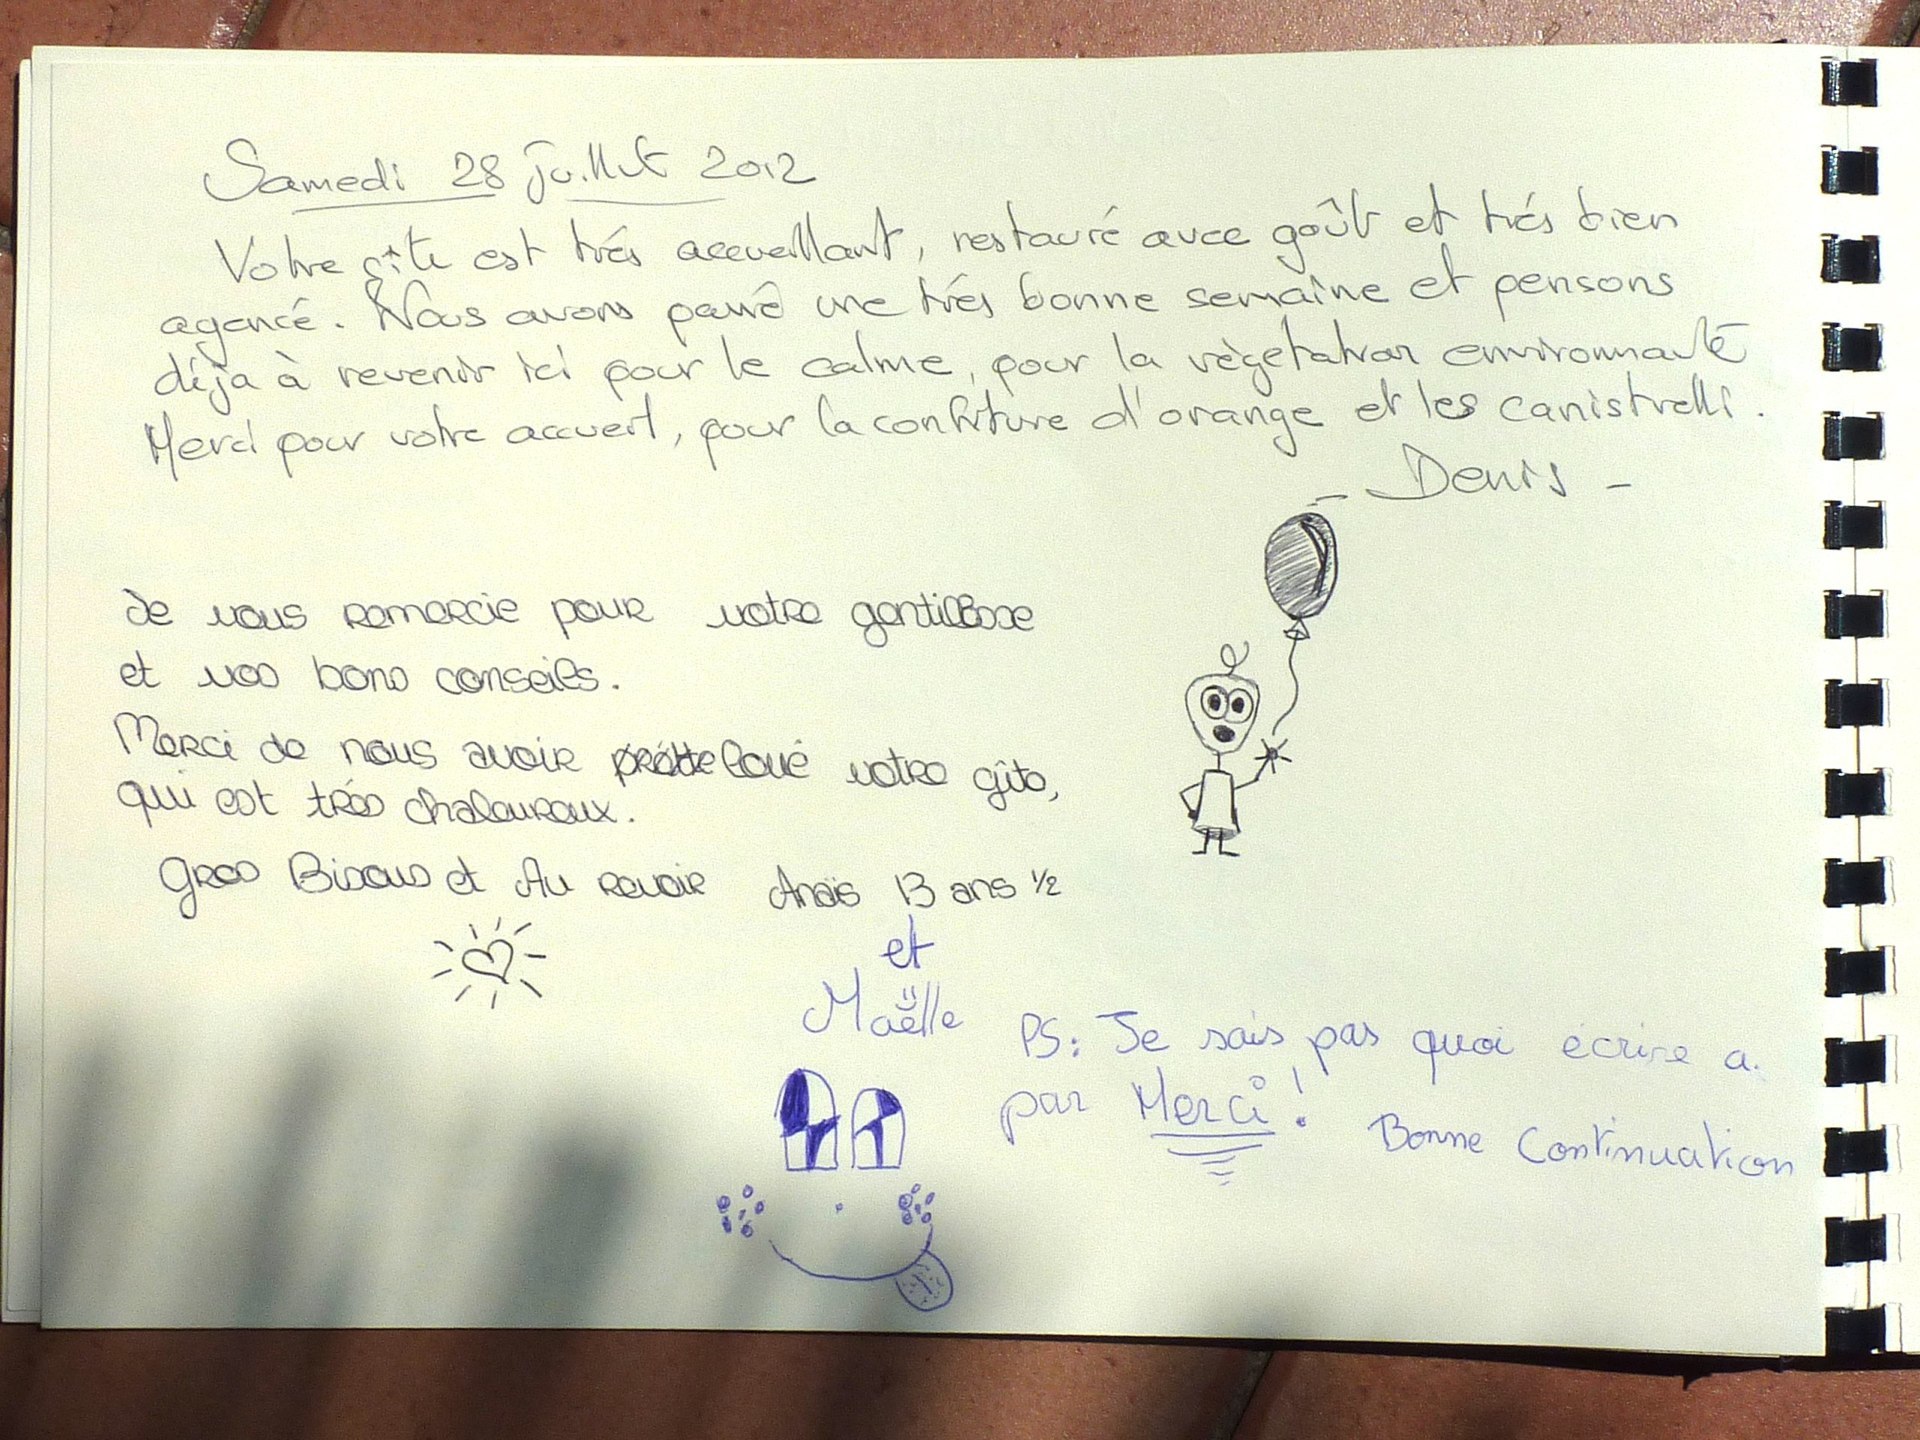 Samedi 28 Juillet 2012
Votre gîte est trés accueillant, restauré avec goût et trés bien
agencé. Nous avons passé une trés bonne semaine et pensons
déja à revenir ici pour le calme, pour la végetation environnante
Merci pour votre accueil, pour la confiture d'orange et les canistrelli.
- Denis -
Je vous remercie pour votre gentillesse
et vos bons conseils.
Merci de nous avoir loué votre gîte,
qui est très chaleureux.
Gros Bisous et Au revoir Anaïs 13 ans ½
et
Maëlle
PS: Je sais pas quoi écrire a.
par Merci! Bonne Continuation